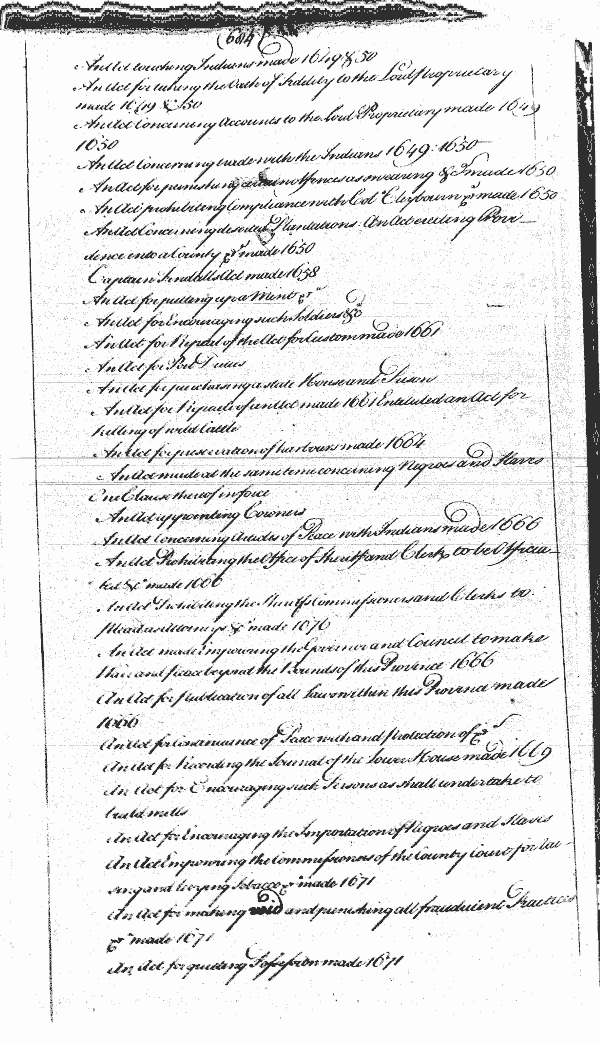 (684)
An Act touching Indians made 1649 & 50
An Act for taking the Oath of Fidelity to the Lord Proprietary
made 1649 & 50
An Act Concerning Accounts to the Lord Proprietary made 1649
1650
An Act Concerning trade with the Indians 1649: 1650
An Act for punishing certain offences as swearing &c made 1650
An Act prohibiting Compliance with Col Cleybourn &c made 1650
An Act Concerning deserted Plantations: An Act erecting Provi
dence into a County &c made 1650
Captain Fendalls Act made 1658
An Act for putting up a Mint &c
An Act for Encouraging such Soldiers &c
An Act for Repeal of the Act for Custom made 1661
An Act for Port Duties
An Act for purchasing a state House and Prison
An Act for Repeale of an Act made 1661 Entituled an Act for
killing of wild Cattle
An Act for preservation of harbours made 1664
An Act made at the same time concerning Negroes and Slaves
One Clause thereof in force
An Act appointing Coroners
An Act Concerning Articles of Peace with Indians made 1666
An Act Prohibiting the Office of Sheriff and Clerk to be Officia
ted &c made 1666
An Act Prohibiting the Sheriffs Commissioners and Clerks to
Plead as Attorneys &c made 1676
An Act made Empowring the Governor and Council to make
Warr and Peace beyond the Bounds of this Province 1666
An Act for Publication of all Laws within this Province made
1666
An Act for Continuance of Peace with and protection of &c
An Act for Recording the Journal of the Lower House made 1669
An Act for Encouraging such Persons as shall undertake to
build mills
An Act for Encouraging the Importation of Negroes and Slaves
An Act Empowring the Commissioners of the County Court for
and levying Tobacco &c made 1671
An Act for making void and punishing all fraudulent Practices
&c made 1671
An Act for quieting Possession made 1671